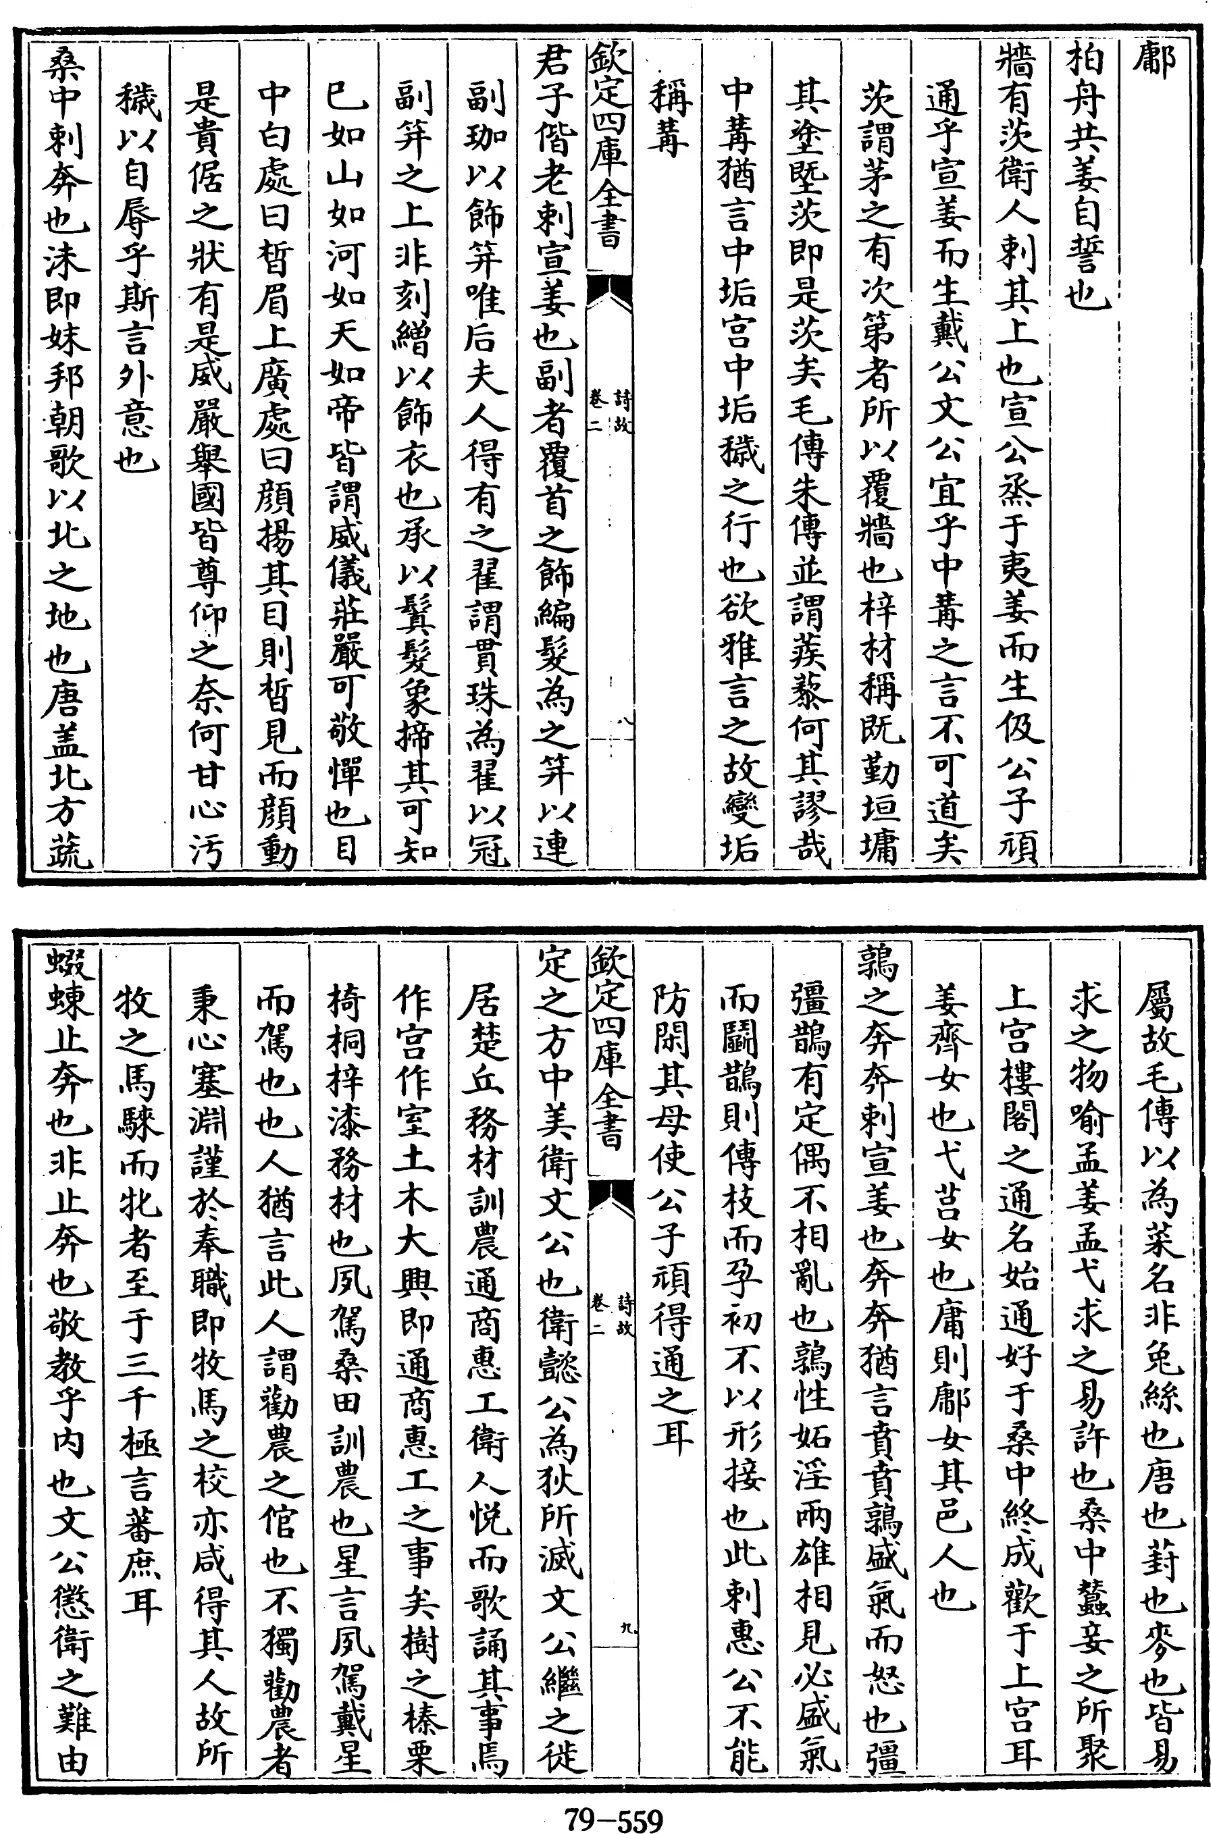 鄘
柏舟共姜自誓也
牆有茨衛人刺其上也宣公烝于夷姜而生伋公子頑
通乎宣姜而生戴公文公宜乎中冓之言不可道矣
茨謂茅之有次第者所以覆牆也梓材稱既勤垣墉
其塗塈茨即是茨矣毛傳朱傳並謂蒺藜何其謬哉
中冓猶言中垢宮中垢穢之行也欲雅言之故變垢
稱冓
欽定四庫全書
詩故
卷二
八
君子偕老刺宣姜也副者覆首之飾編髮為之笄以連
副珈以飾笄唯后夫人得有之翟謂貫珠為翟以冠
副笄之上非刻繒以飾衣也承以鬒髮象揥其可知
已如山如河如天如帝皆謂威儀莊嚴可敬憚也目
中白處曰晳眉上廣處曰顔揚其目則晳見而顔動
是貴倨之狀有是威嚴舉國皆尊仰之奈何甘心污
穢以自辱乎斯言外意也
桑中刺奔也沬即妹邦朝歌以北之地也唐盖北方蔬
屬故毛傳以為菜名非兔絲也唐也葑也麥也皆易
求之物喻孟姜孟弋求之易許也桑中蠶妾之所聚
上宮樓閣之通名始通好于桑中終成歡于上宮耳
姜齊女也弋莒女也庸則鄘女其邑人也
鶉之奔奔刺宣姜也奔奔猶言賁賁鶉盛氣而怒也彊
彊鵲有定偶不相亂也鶉性妬淫兩雄相見必盛氣
而鬭鵲則傳枝而孕初不以形接也此刺惠公不能
防閑其母使公子頑得通之耳
欽定四庫全書
詩故
卷二
九
定之方中美衛文公也衛懿公為狄所滅文公繼之徙
居楚丘務材訓農通商惠工衛人悅而歌誦其事焉
作宮作室土木大興即通商惠工之事矣樹之榛栗
椅桐梓漆務材也夙駕桑田訓農也星言夙駕戴星
而駕也也人猶言此人謂勸農之倌也不獨勸農者
秉心塞淵謹於奉職即牧馬之校亦咸得其人故所
牧之馬騋而牝者至于三千極言蕃庶耳
蝃蝀止奔也非止奔也敬教乎内也文公懲衛之難由
79-559